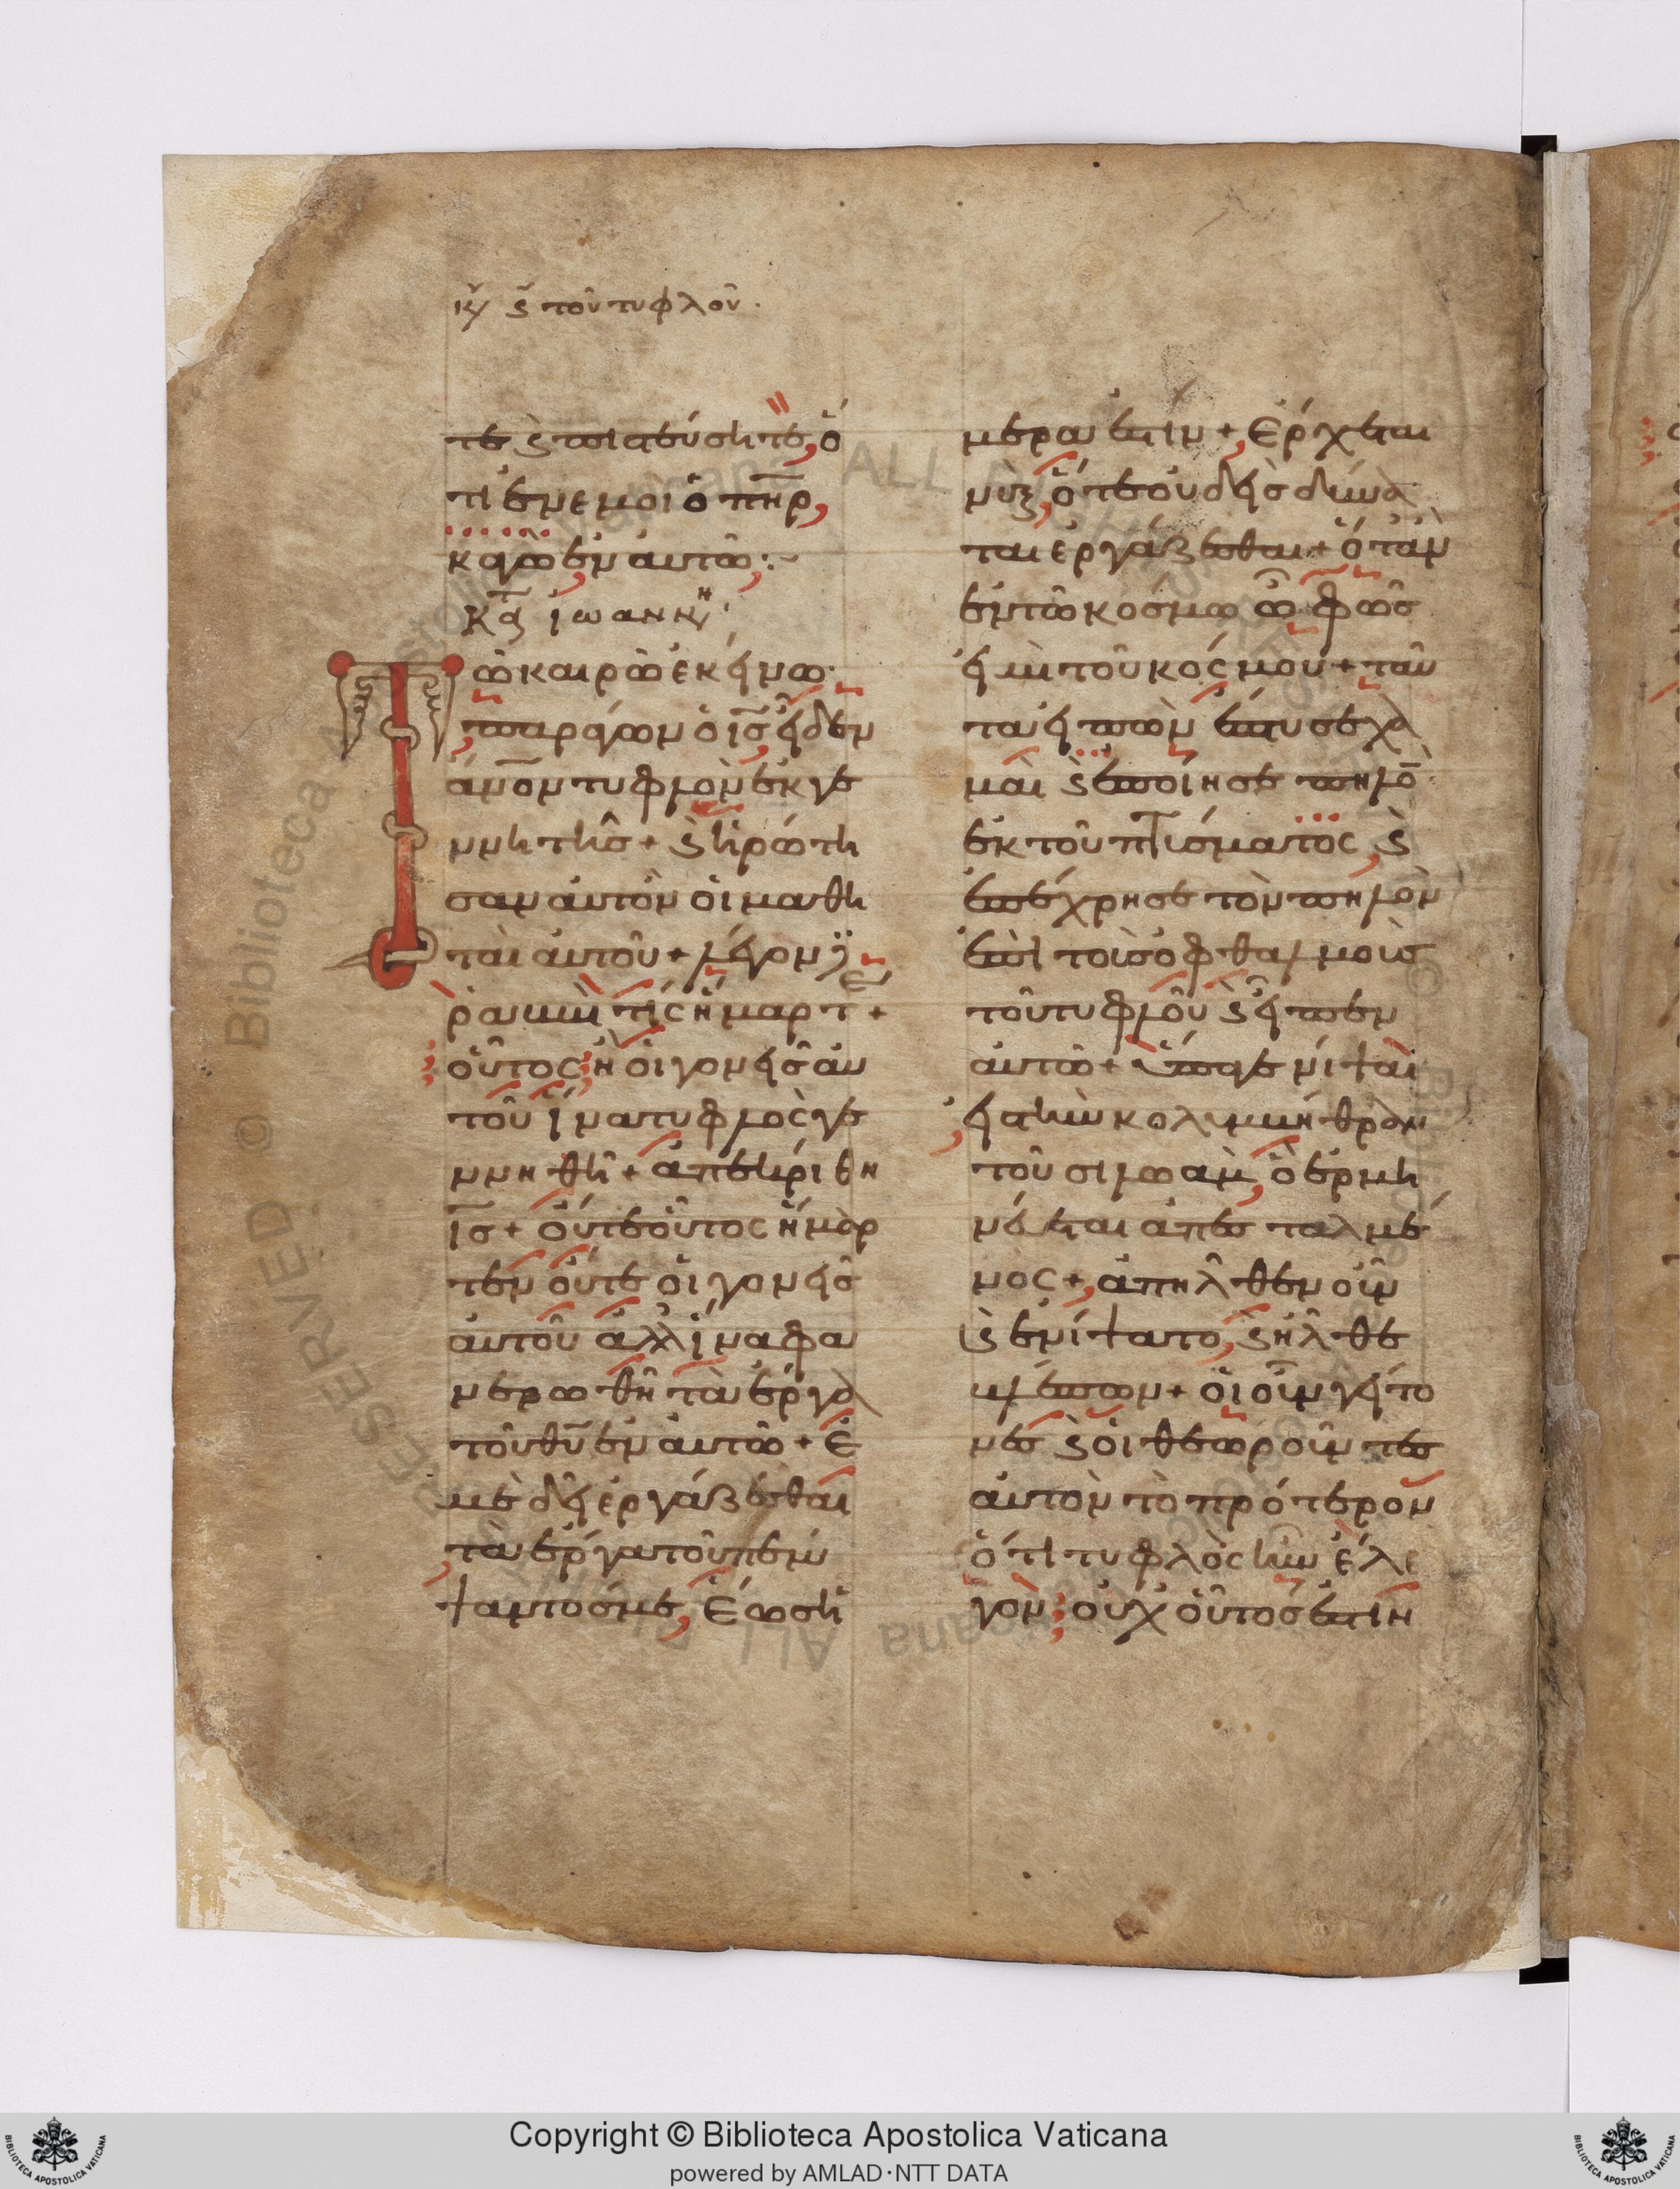 κυ ϛ τοῦ τυφλοῦ.
τε ϛ πιστεύσητε, ὅ
τι ἐν ἐμοι ὁ πηρ,
καγὼ ἐν αυτῶ :~
κτ ἰωαννην
ῶ καιρῶ ἐκείνω·
παράγων ὁ ισ εἶδεν
ἀνον τυφλὸν ἐκ γε
ννητῆσ + ϛ ἠρώτη
σαν αυτὸν οἱ μαθη
ταὶ αυτοῦ + λέγοντες
ῥαββὶ τίς ἥμαρτε +
οὗτος ἢ οἱ γονεῖσ αυ
τοῦ ἵνα τυφλὸς γε
ννηθῆ + ἀπεκρίθη
ισ + οὔτε οὗτος ἥμαρ
τεν οὔτε οἱ γονεῖσ
αυτοῦ ἀλλ ἵνα φα
νερωθῆ τὰ ἔργα
τοῦ θυ ἐν αυτῶ + ἐ
μὲ δεῖ ἐργάζεσθαι
τὰ ἔργα τοῦ πέμ
ψαντόσ με, ἕωσ ἡ
μέρα ἐστίν +, ἔρχεται
νὺξ, ὅτε οὐδεὶσ δύνα
ται ἐργάζεσθαι + ὅταν
ἐν τῶ κόσμω ὦ φῶσ
εἰμὶ τοῦ κόσμου + ταῦ
τα εἰπὼν ἔπτυσε χα
μαὶ ϛ ἐποίησε πηλὸ
ἐκ τοῦ πτύσματος, ϛ
ἐπέχρησε τὸν πηλὸν
ἐπὶ τοὺσ ὀφθαλμοὺσ
τοῦ τυφλοῦ ϛ εἶπεν
αυτῶ + ὕπαγε νίψαι
εἰσ τὴν κολυμβήθραν
τοῦ σιλωὰμ, ὃ ἑρμη
νεύεται ἀπεσταλμέ
νος +, ἀπῆλθεν οὖν
ϛ ἐνίψατο, ϛ ἦλθε
βλέπων + οἱ οὖν γείτο
νεσ ϛ οἱ θεωροῦντεσ
αυτὸν τὸ πρότερον
ὅτι τυφλὸς ἦν ἔλε
γον; οὐχ οὗτόσ ἐστιν
Copyright © Biblioteca Apostolica Vaticana
powered by AMLAD·NTT DATA